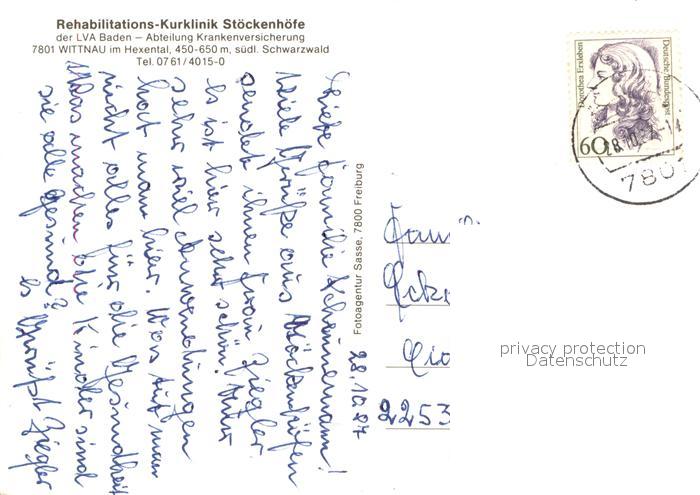 Rehabilitations-Kurklinik Stöckenhöfe
der LVA Baden – Abteilung Krankenversicherung
7801 WITTNAU im Hexental, 450-650 m, südl. Schwarzwald
Tel. 0761/4015-0
28.10.87
Liebe Familie Scheunemann!
Viele Grüße aus Stöckenhöfen
sendet ihnen Frau Ziegler
Es ist hier sehr schön. Nur
sehr viel Anwendungen
hat man hier. Was tut man
nicht alles für die Gesundheit
Was machen die Kinder sind
sie alle gesund?
Es Grüßt Ziegler
Fotoagentur Sasse, 7800 Freiburg
Fam
2253
Dorothea Erxleben
Deutsche Bundespost
60
28.10.
780
privacy protection
Datenschutz